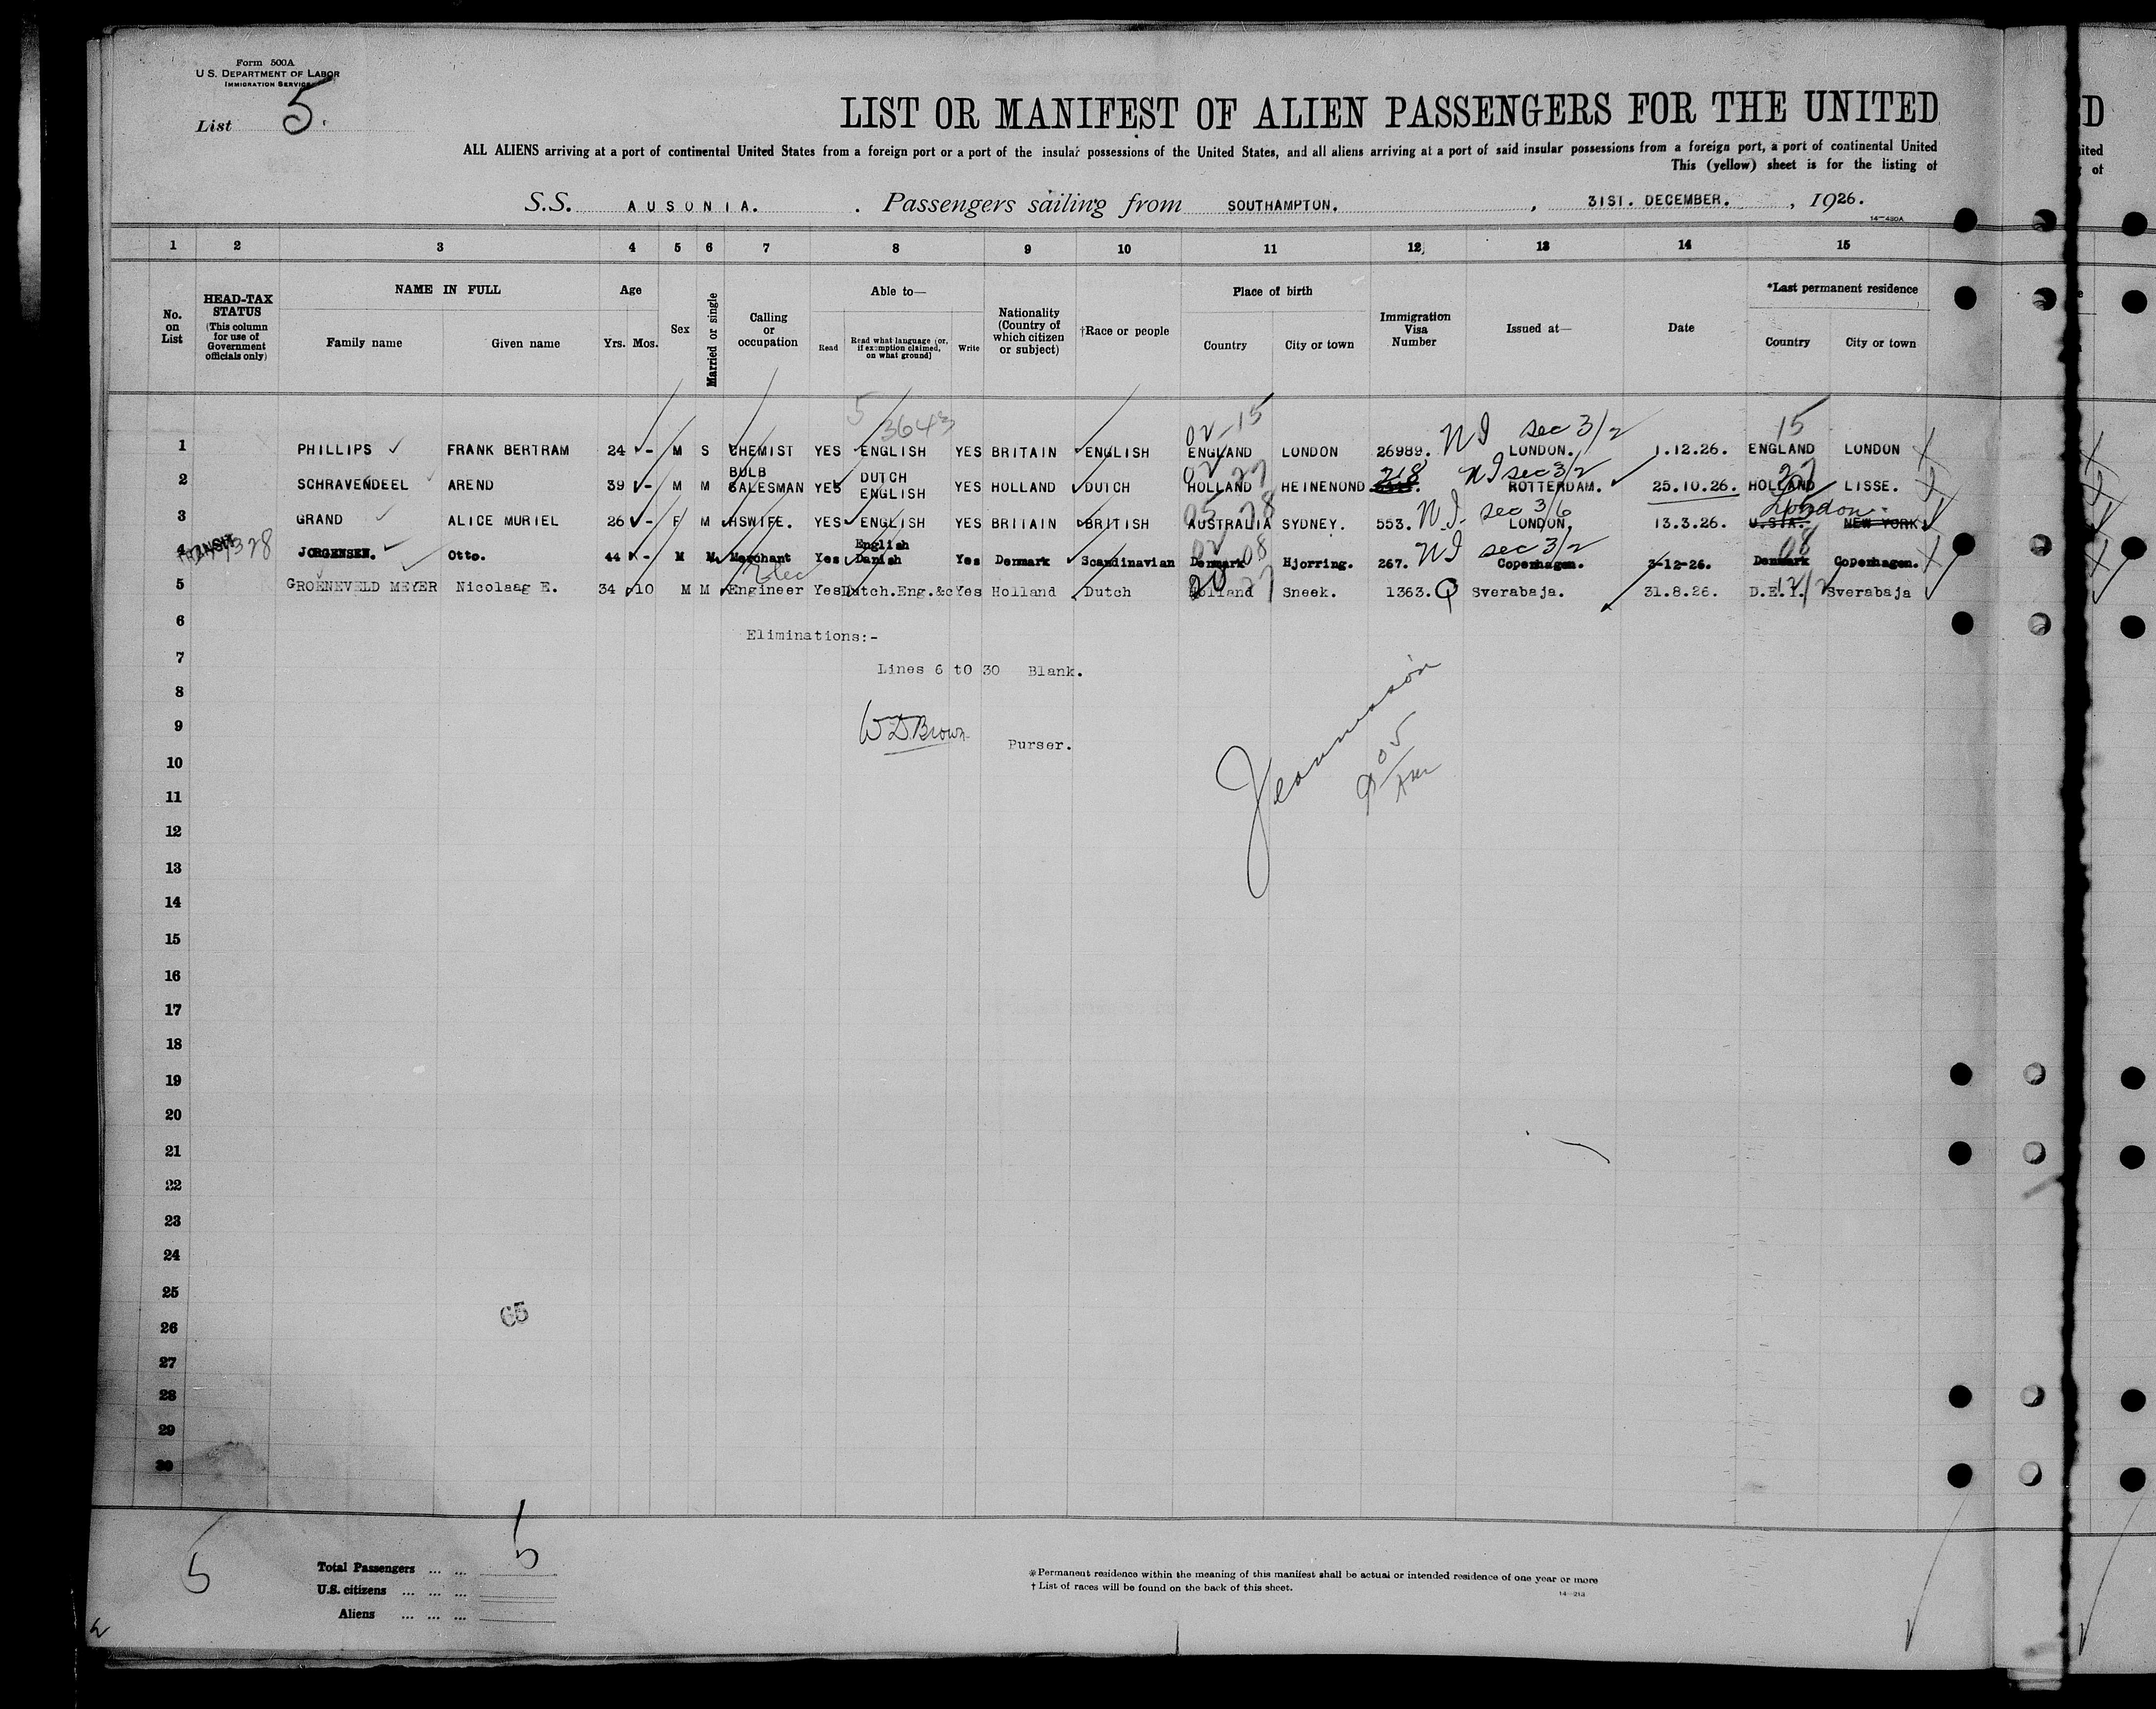 Form 500A
U.S. DEPARTMENT OF LABOR
IMMIGRATION SERVICE
List 5.
LIST OR MANIFEST OF ALIEN PASSENGERS FOR THE UNITED
ALL ALIENS arriving at a port of continental United States from a foreign port or a port of the insular possessions of the United States, and all aliens arriving at a port of said insular possessions from a foreign port, a port of continental United
This (yellow) sheet is for the listing of
S.S. AUSONIA. Passengers sailing from SOUTHAMPTON. , 31ST. DECEMBER. , 1926.
14—430A
1 2 3 4 5 6 7 8 9 10 11 12 13 14 15
No. on List
HEAD-TAX STATUS (This column for use of Government officials only)
NAME IN FULL
Family name Given name
Age
Yrs. Mos.
Sex
Married or single
Calling or occupation
Able to—
Read Read what language (or, if exemption claimed, on what ground) Write
Nationality (Country of which citizen or subject)
†Race or people
Place of birth
Country City or town
Immigration Visa Number
Issued at—
Date
*Last permanent residence
Country City or town
5 3643 02-15 NI sec 3/2 15
1 PHILLIPS FRANK BERTRAM 24 - M S CHEMIST YES ENGLISH YES BRITAIN ENGLISH ENGLAND LONDON 26989. LONDON. 1.12.26. ENGLAND LONDON
02 27 218 NI sec 3/2 27
2 SCHRAVENDEEL AREND 39 - M M BULB SALESMAN YES DUTCH ENGLISH YES HOLLAND DUTCH HOLLAND HEINENOND ROTTERDAM. 25.10.26. HOLLAND LISSE.
05 28 NI sec 3/6 London
3 GRAND ALICE MURIEL 26 - F M HSWIFE. YES ENGLISH YES BRITAIN BRITISH AUSTRALIA SYDNEY. 553. LONDON, 13.3.26. U.S.A. NEW YORK
TRANSIT 328 02 08 NI sec 3/2 08
4 JORGENSEN. Otto. 44 - M M. Merchant Yes English Danish Yes Denmark Scandinavian Denmark Hjorring. 267. Copenhagen. 3-12-26. Denmark Copenhagen.
Elec 20 27 Q 12/2
5 GROENEVELD MEYER Nicolaag E. 34 10 M M Engineer Yes Dutch.Eng.&c Yes Holland Dutch Holland Sneek. 1363. Sverabaja. 31.8.26. D.E.I. Sverabaja
6
Eliminations:-
7 Lines 6 to 30 Blank.
8
9 W D Brown Purser.
10
11
12
13
14
15
16
17
18
19
20
21
22
23
24
25
65
26
27
28
29
30
5
Total Passengers ... ... 5
U.S. citizens ... ... ...
Aliens ... ... ...
*Permanent residence within the meaning of this manifest shall be actual or intended residence of one year or more
† List of races will be found on the back of this sheet.
14—213